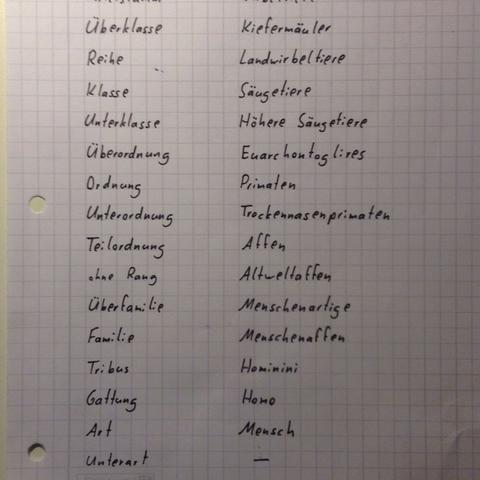 Überklasse Kiefermäuler
Reihe Landwirbeltiere
Klasse Säugetiere
Unterklasse Höhere Säugetiere
Überordnung Euarchontoglires
Ordnung Primaten
Unterordnung Trockennasenprimaten
Teilordnung Affen
ohne Rang Altweltaffen
Überfamilie Menschenartige
Familie Menschenaffen
Tribus Hominini
Gattung Homo
Art Mensch
Unterart —